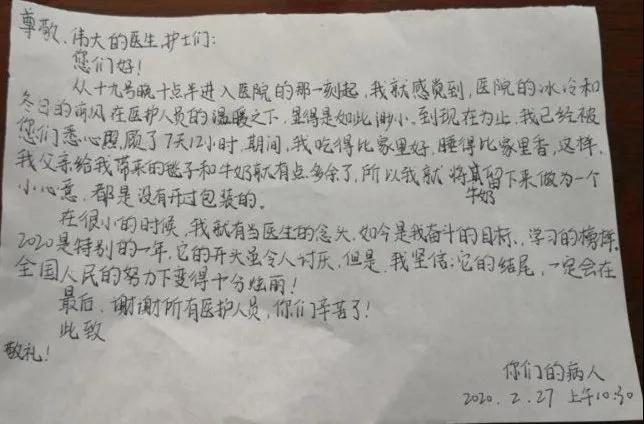 尊敬、伟大的医生护士们:
您们好!
从十九号晚十点半进入医院的那一刻起,我就感觉到,医院的冰冷和
冬日的寒风在医护人员的温暖之下,显得是如此渺小。到现在为止,我已经被
您们悉心照顾了7天12小时,期间,我吃得比家里好,睡得比家里香,这样,
我父亲给我带来的毯子和牛奶就有点多余了,所以我就将其留下来做为一个
牛奶
小心意,都是没有开过包装的。
在很小的时候,我就有当医生的念头,如今是我奋斗的目标,学习的榜样。
2020是特别的一年,它的开头虽令人讨厌,但是,我坚信:它的结尾,一定会在
全国人民的努力下变得十分炫丽!
最后,谢谢所有医护人员,你们辛苦了!
此致
敬礼!
你们的病人
2020.2.27 上午10:30